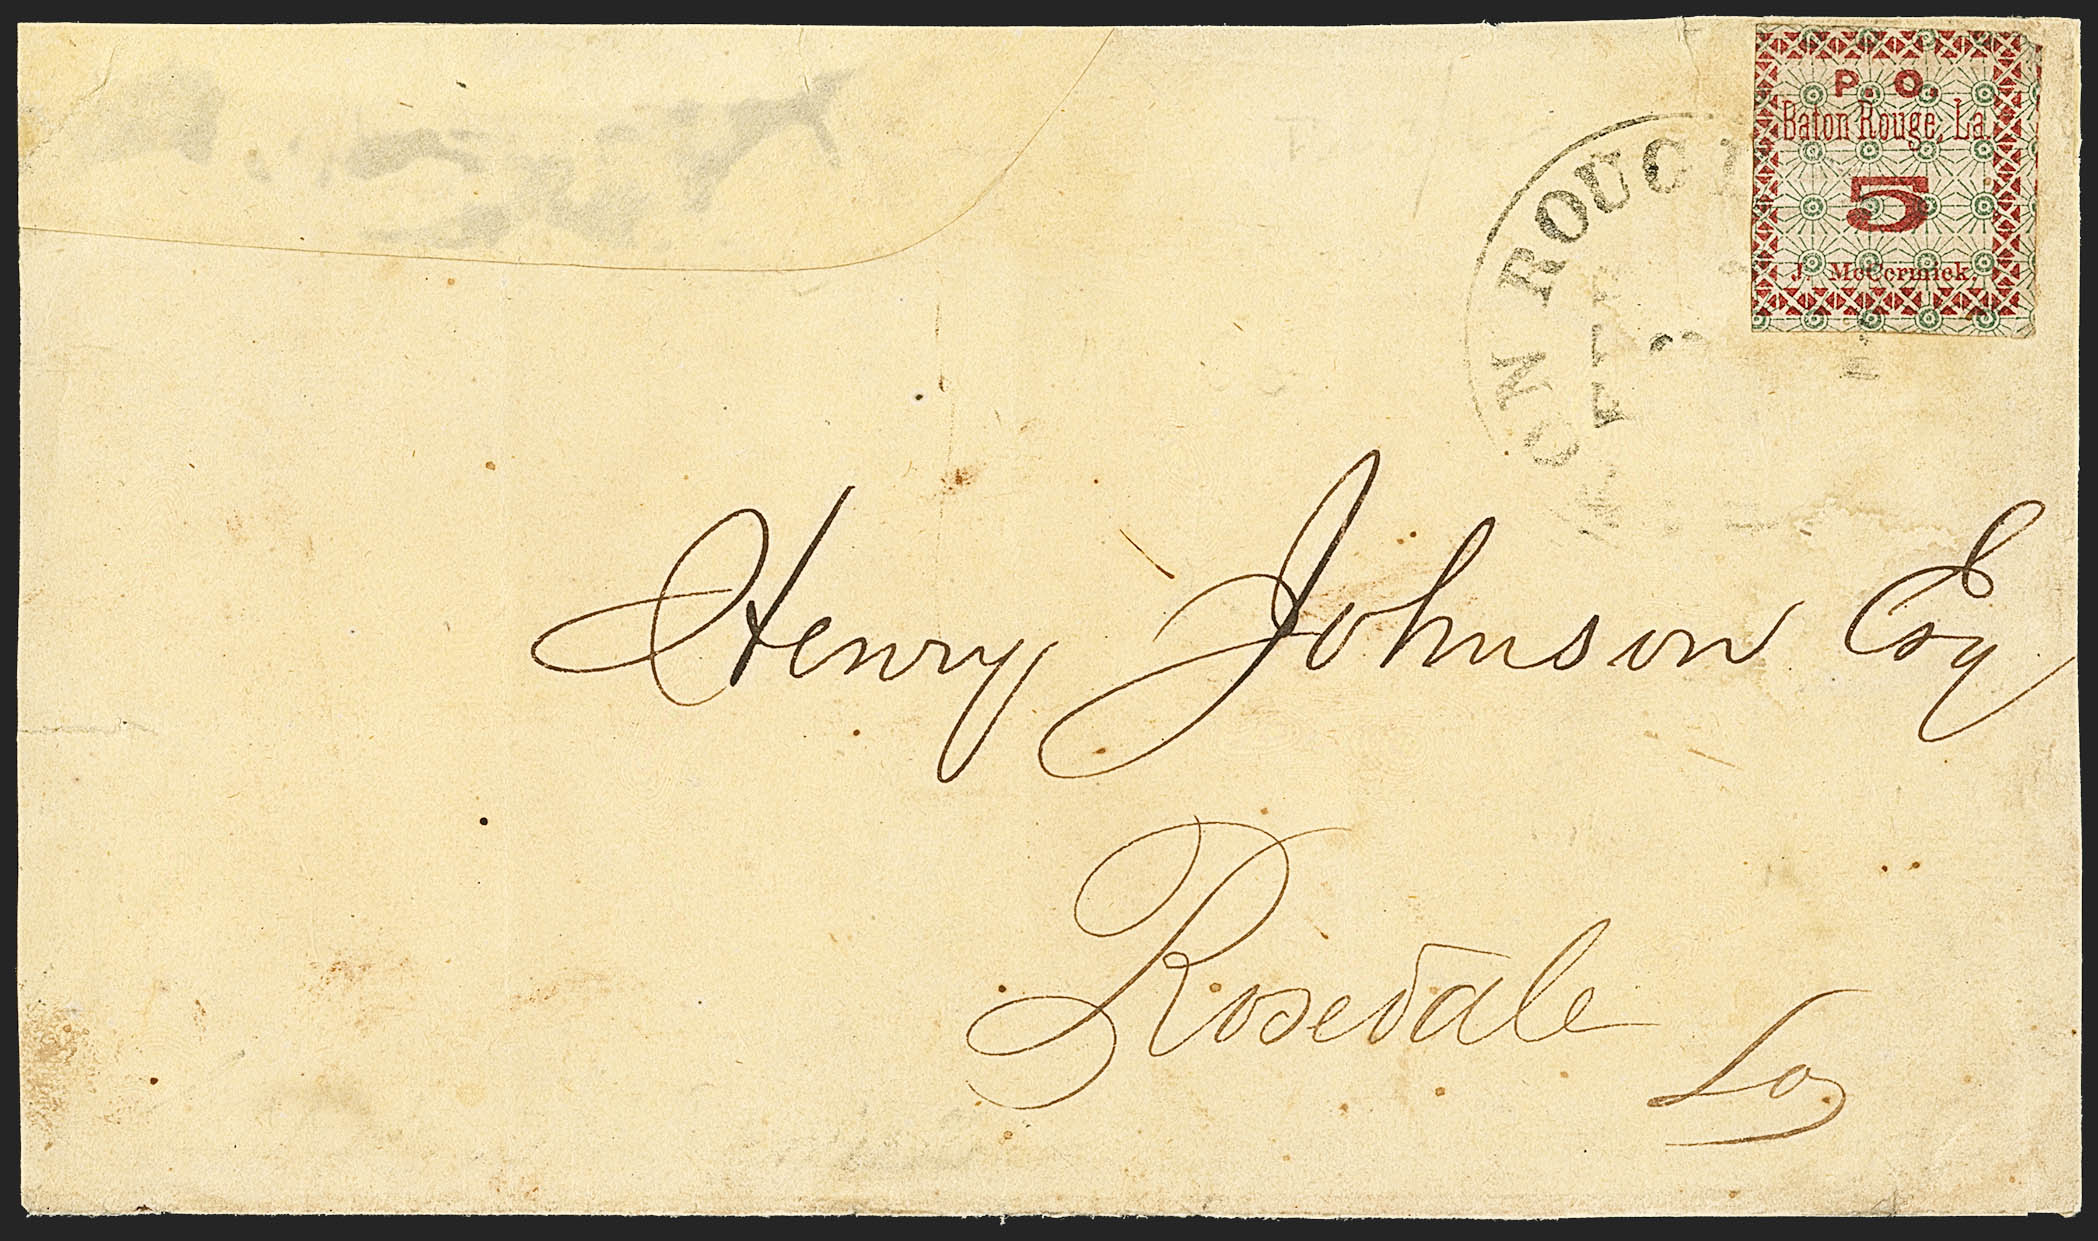 P. O.
Baton Rouge, La.
5
J. McCormick.
ON ROUG
Henry Johnson Esq
Rosedale
La